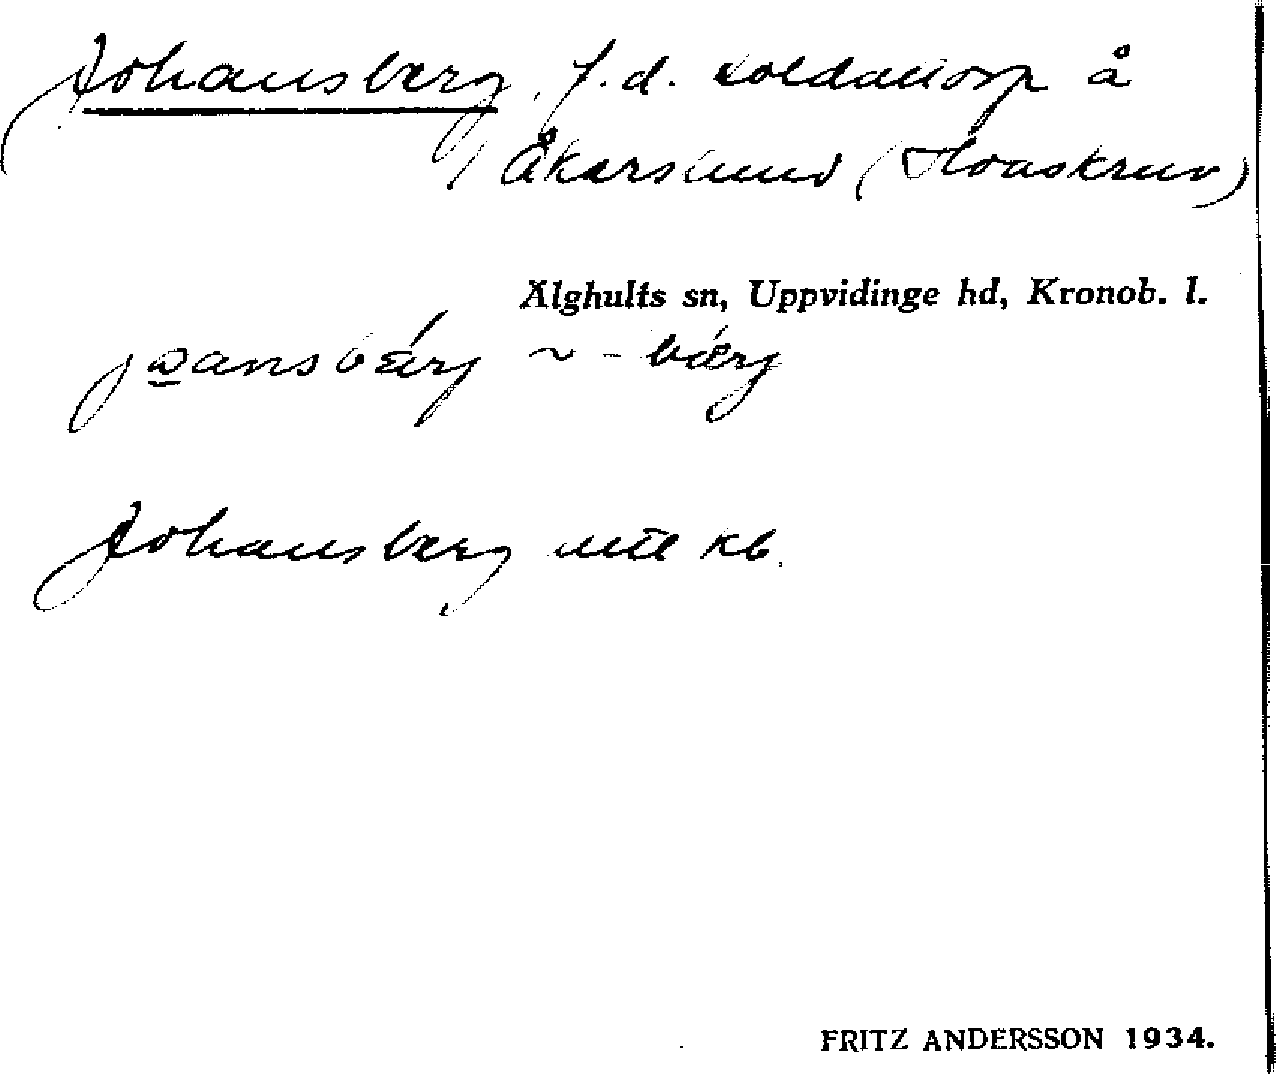 Johansberg, f.d. soldattorp å
Åkerslund (Hvaskruv)
Älghults sn, Uppvidinge hd, Kronob. l.
jωansbǽrj ~ -bǽrj
Johansberg utl kb.
FRITZ ANDERSSON 1934.